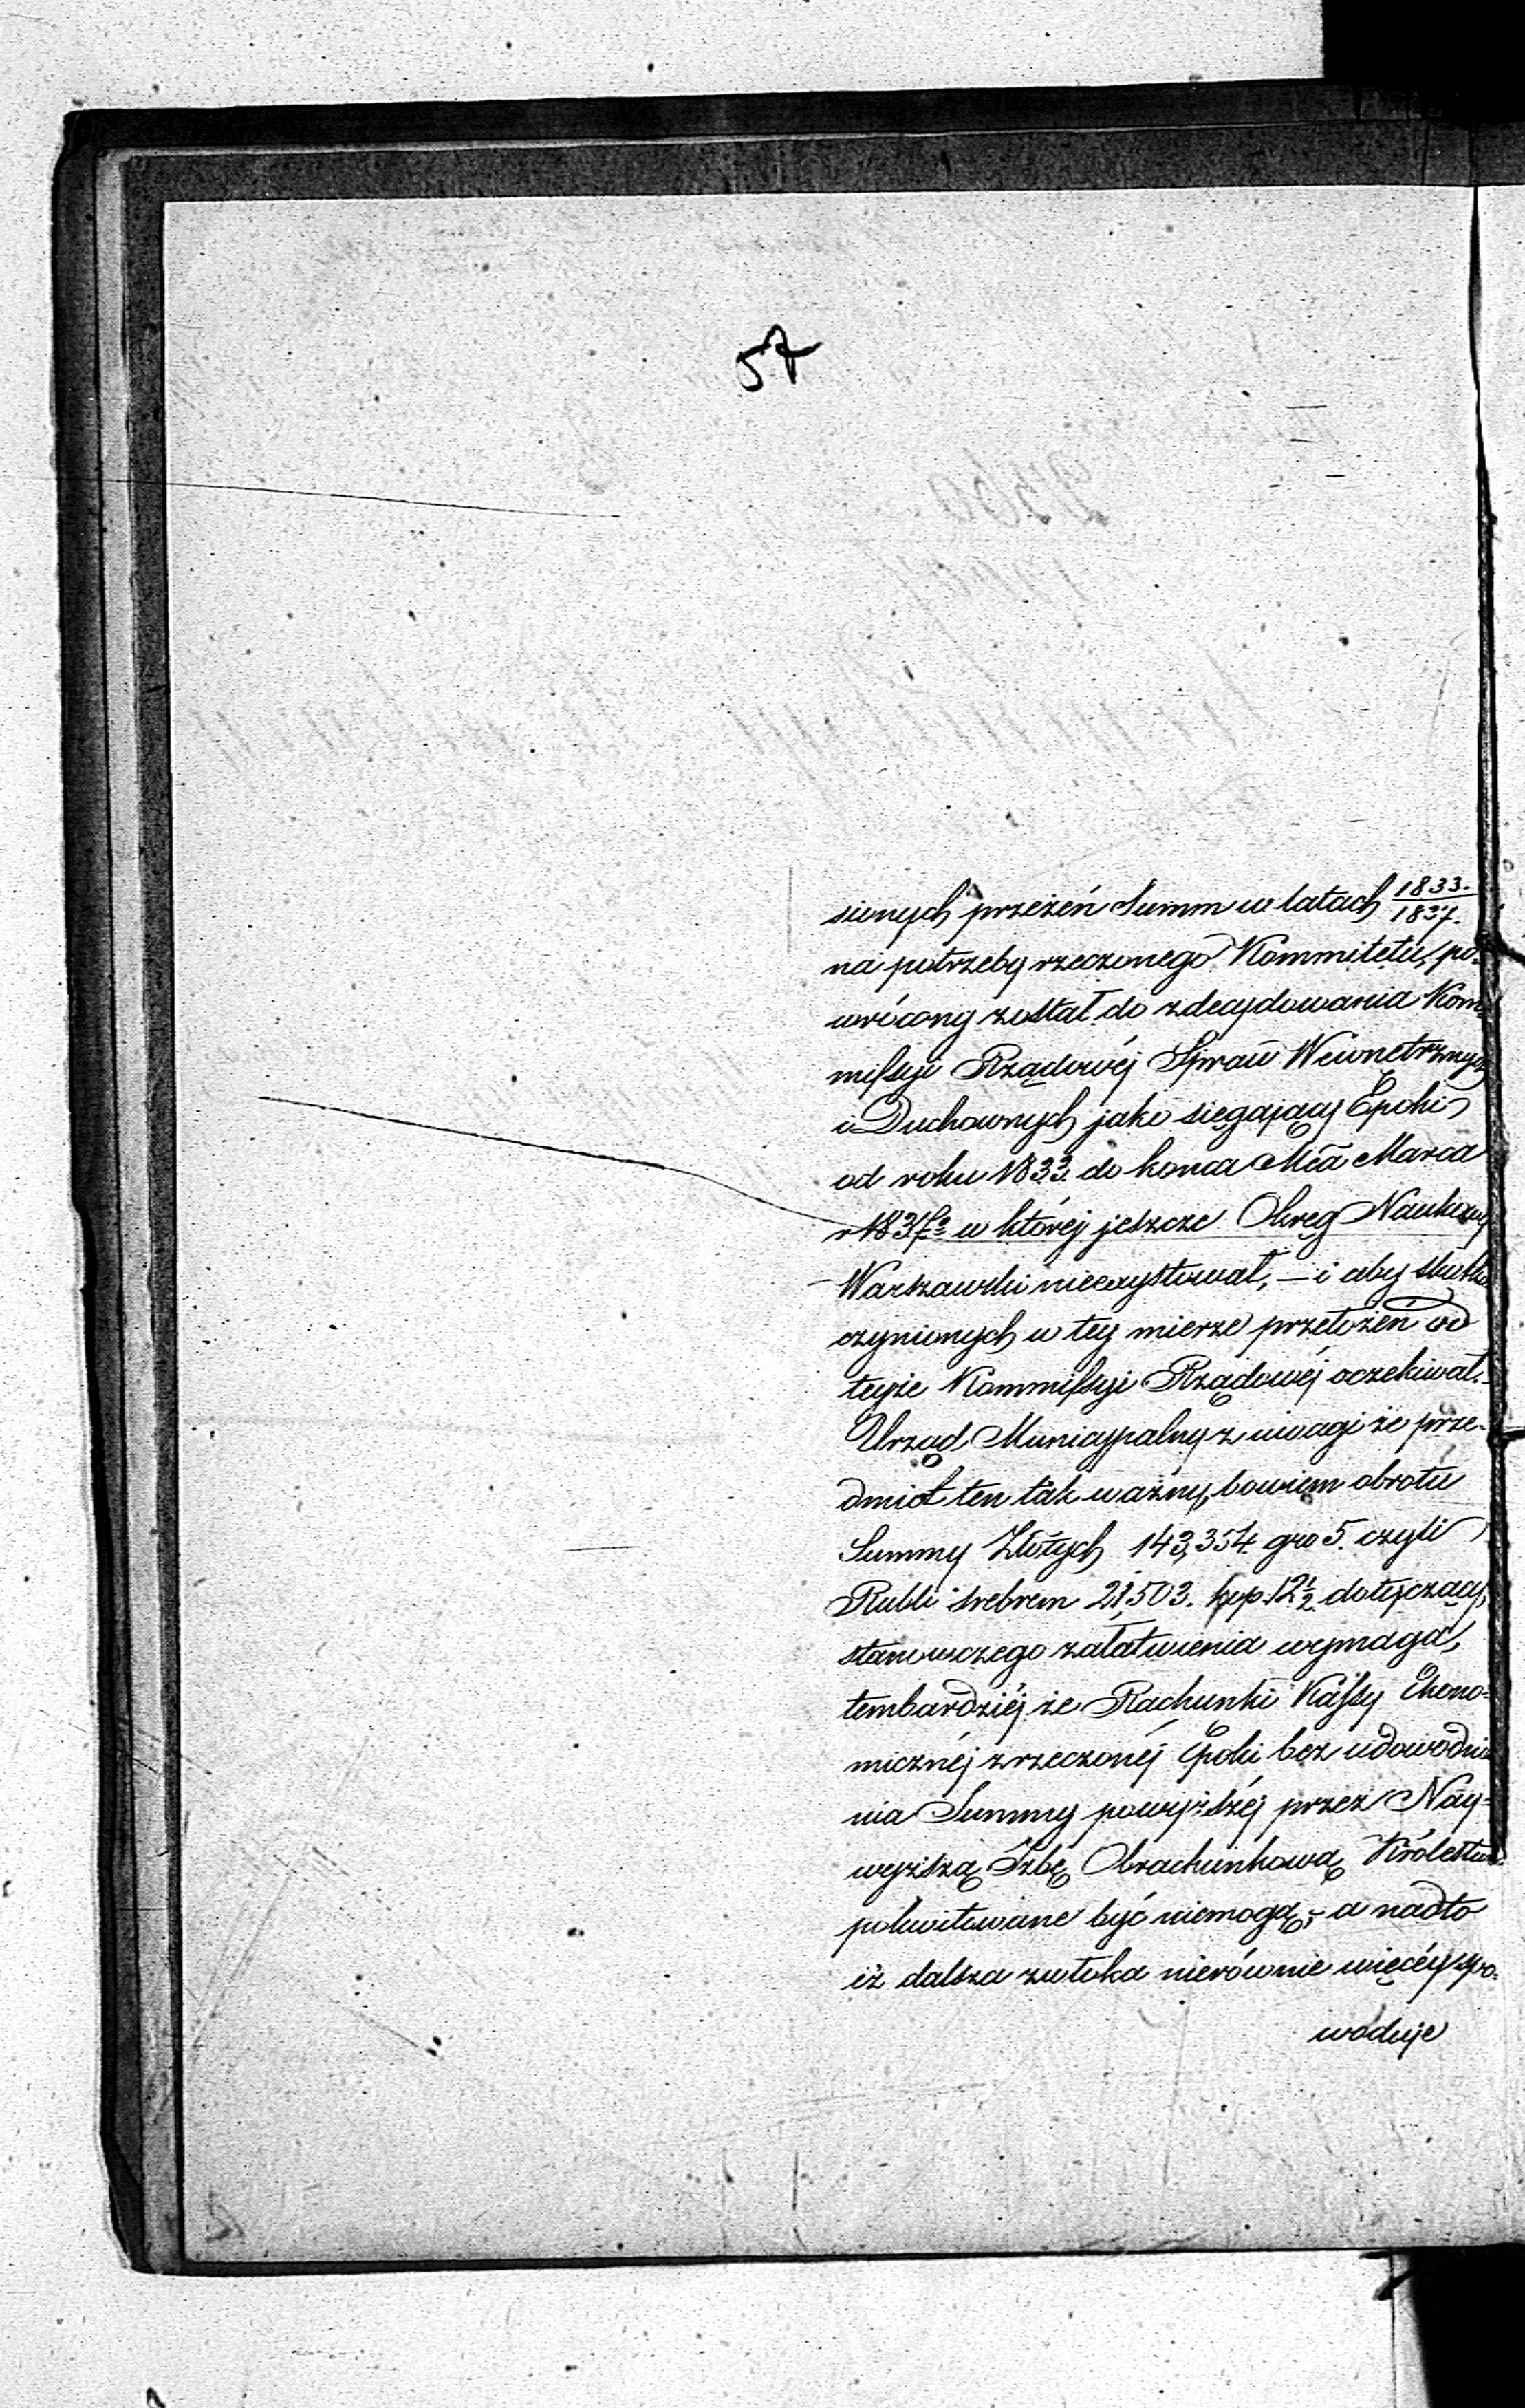 57
sionych przezeń Summ w latach 1833./1837.
na potrzeby rzeczonego Kommitetu, po-
wrócony został do zdecydowania Kom-
missyi Rządowéj Spraw Wewnętrznych
i Duchownych jako sięgający Epoki
od roku 1833. do końca Mca Marca
r 1837º w któréj jeszcze Okręg Naukowy
Warszawski nieexystował, – i aby skutku
czynionych w tey mierze przełożeń od
teyże Kommissyi Rządowéj oczekiwał.
Urząd Municypalny z uwagi że prze-
dmiot ten tak ważny, bowiem obrotu
Summy Złotych 143,354 gro 5. czyli
Rubli srebrem 21,503. kop. 12½ dotyczący,
stanowczego załatwienia wymaga,
tembardziéj że Rachunki Kassy Ekono-
micznéj z rzeczonéj Epoki bez udowodnie
nia Summy powyższéj przez Nay-
wyższą Izbę Obrachunkową Królestwa
pokwitowane być niemogą; – a nadto
iż dalsza zwłoka nierównie więcéy spo-
woduje